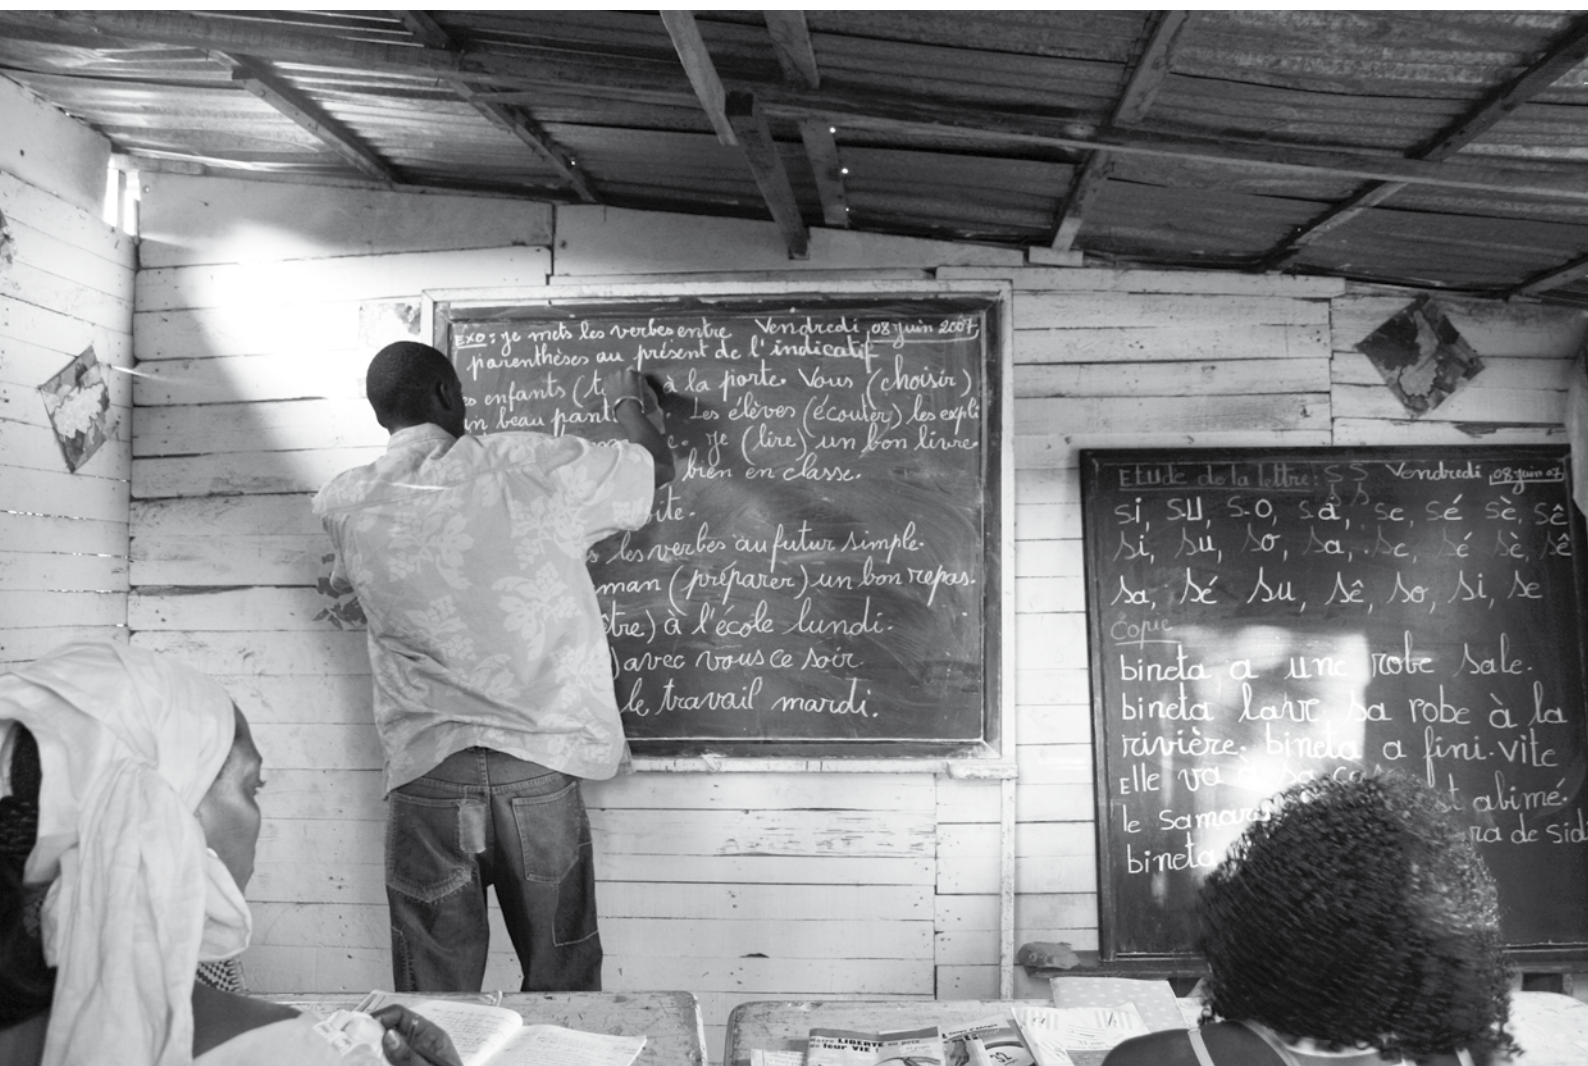 Exo: je mets les verbes entre Vendredi 08 juin 2007
parenthèses au présent de l'indicatif
enfants à la porte. Vous (choisir)
un beau Les élèves (écouter) les expli
je (lire) un bon livre.
bien en classe.
les verbes au futur simple.
(préparer) un bon repas.
à l'école lundi.
avec vous ce soir.
le travail mardi.
Etude de la lettre: s s Vendredi 08 juin 07
si, su, so, sa, se, sé sè, sê
si, su, so, sa, se, sé sè, sê
sa, sé su, sê, so, si, se
Copie
bineta a une robe sale.
bineta lave sa robe à la
rivière. bineta a fini. vite
Elle va à sa
le abimé.
de
bineta
Notre LIBERTÉ au prix
de leur VIE !